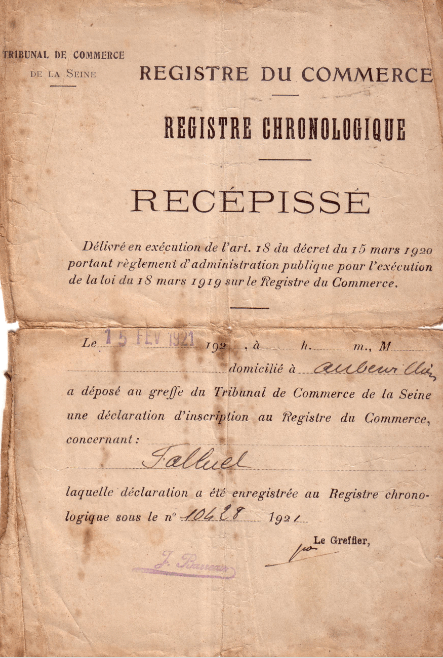 TRIBUNAL DE COMMERCE
DE LA SEINE
REGISTRE DU COMMERCE
REGISTRE CHRONOLOGIQUE
RECÉPISSÉ
Délivré en exécution de l'art. 18 du décret du 15 mars 1920
portant règlement d'administration publique pour l'exécution
de la loi du 18 mars 1919 sur le Registre du Commerce.
Le 15 FEV 1921 192 , à h. m., M
domicilié à Aubervilliers
a déposé au greffe du Tribunal de Commerce de la Seine
une déclaration d'inscription au Registre du Commerce,
concernant :
laquelle déclaration a été enregistrée au Registre chrono-
logique sous le n° 10428 1921
Le Greffier,